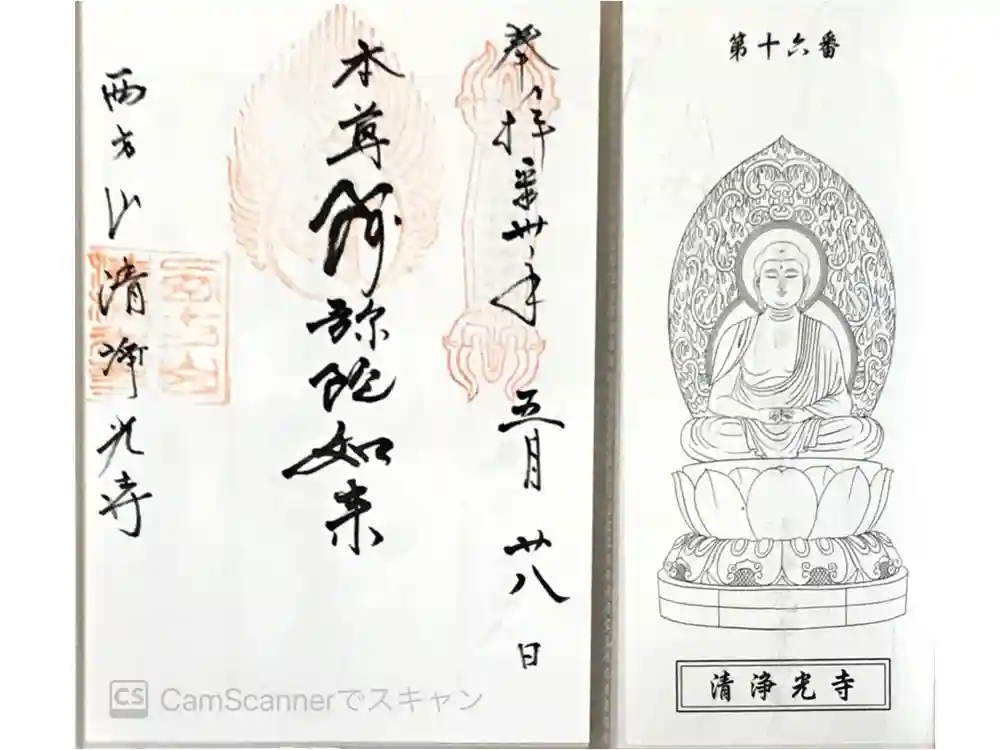 第十六番
清浄光寺
奉拝 卅年 五月 廿八日
本尊 阿弥陀如来
西方山 清浄光寺
CamScannerでスキャン